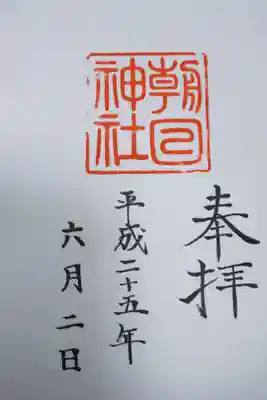 奉拝
朝日
神社
平成二十五年
六月二日